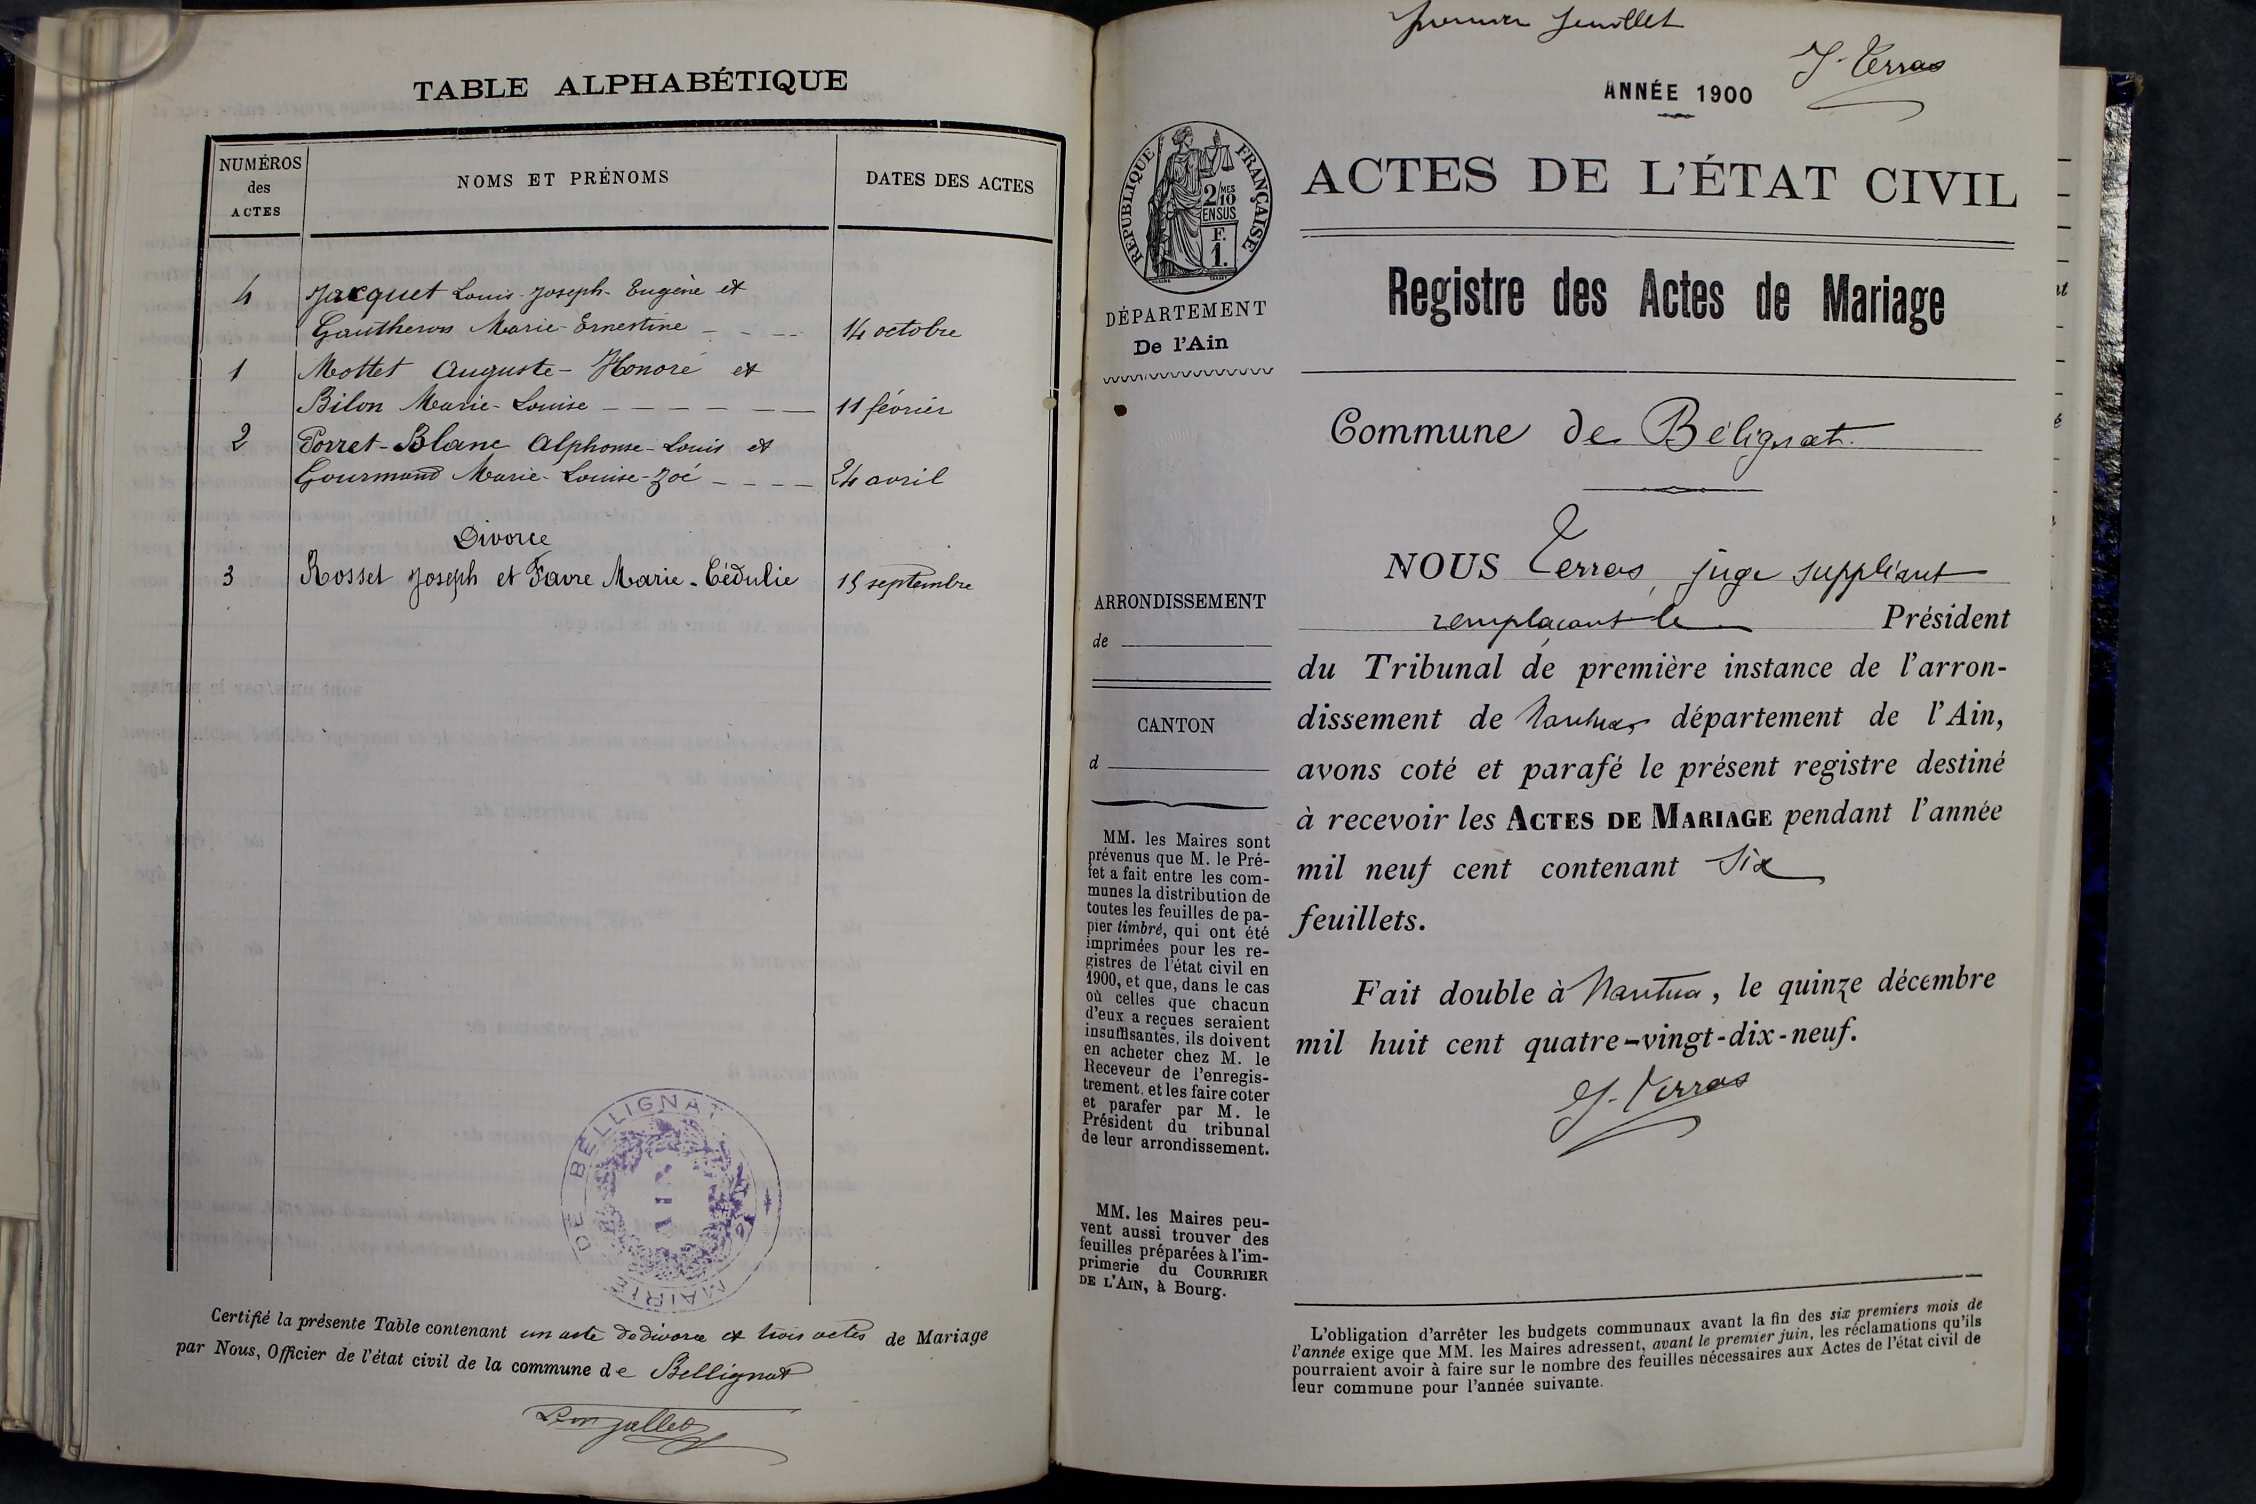 TABLE ALPHABÉTIQUE
NUMÉROS
des
ACTES
NOMS ET PRÉNOMS
DATES DES ACTES
4 Jacquet Louis-Joseph-Eugène et
Gautheron Marie-Ernestine - - - - 14 octobre
1 Mottet Auguste-Honoré et
Bilon Marie-Louise - - - - - - 11 février
2 Porret-Blanc Alphonse-Louis et
Gourmand Marie-Louise-Zoé - - - - 24 avril
Divorce
3 Rosset Joseph et Favre Marie-Cédulie 15 septembre
MAIRIE DE BELLIGNAT
AIN
Certifié la présente Table contenant un acte de divorce et trois actes de Mariage
par Nous, Officier de l'état civil de la commune de Bellignat
premier feuillet
J. Terras
ANNÉE 1900
RÉPUBLIQUE FRANÇAISE
2/10 MES
EN SUS
F.
1.
DÉPARTEMENT
De l'Ain
ARRONDISSEMENT
de
CANTON
d
MM. les Maires sont
prévenus que M. le Pré-
fet a fait entre les com-
munes la distribution de
toutes les feuilles de pa-
pier timbré, qui ont été
imprimées pour les re-
gistres de l'état civil en
1900, et que, dans le cas
où celles que chacun
d'eux a reçues seraient
insuffisantes, ils doivent
en acheter chez M. le
Receveur de l'enregis-
trement, et les faire coter
et parafer par M. le
Président du tribunal
de leur arrondissement.
MM. les Maires peu-
vent aussi trouver des
feuilles préparées à l'im-
primerie du COURRIER
DE L'AIN, à Bourg.
ACTES DE L'ÉTAT CIVIL
Registre des Actes de Mariage
Commune de Bélignat.
NOUS Terras, juge suppléant
remplaçant le Président
du Tribunal de première instance de l'arron-
dissement de Nantua, département de l'Ain,
avons coté et parafé le présent registre destiné
à recevoir les ACTES DE MARIAGE pendant l'année
mil neuf cent contenant Six
feuillets.
Fait double à Nantua, le quinze décembre
mil huit cent quatre-vingt-dix-neuf.
J. Terras
L'obligation d'arrêter les budgets communaux avant la fin des six premiers mois de
l'année exige que MM. les Maires adressent, avant le premier juin, les réclamations qu'ils
pourraient avoir à faire sur le nombre des feuilles nécessaires aux Actes de l'état civil de
leur commune pour l'année suivante.